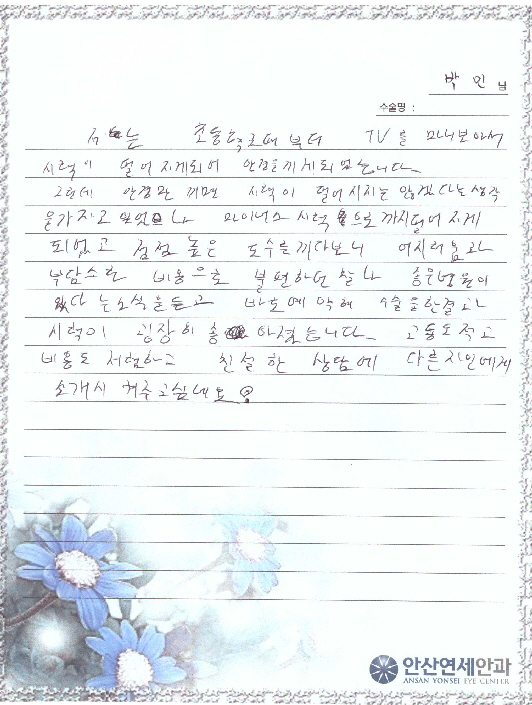 박민 님
수술명 :
저는 초등학교때부터 TV를 마니보아서
시력이 떨어지게되어 안경을끼게되었습니다.
그런데 안경만 끼면 시력이 떨어지지는 않겠다는생각
을가지고 있었으나 마이너스 시력으로까지떨어지게
되었고 점점 높은 도수를끼다보니 어지러움과
부담스런 비용으로 불편하던 찰나 좋은병원이
있다는소식을듣고 바로예약해 수술을한결과
시력이 굉장히 좋아졌습니다. 고통도적고
비용도 저렴하고 친절한 상담에 다른지인에게
소개시켜주고싶네요
안산연세안과
ANSAN YONSEI EYE CENTER